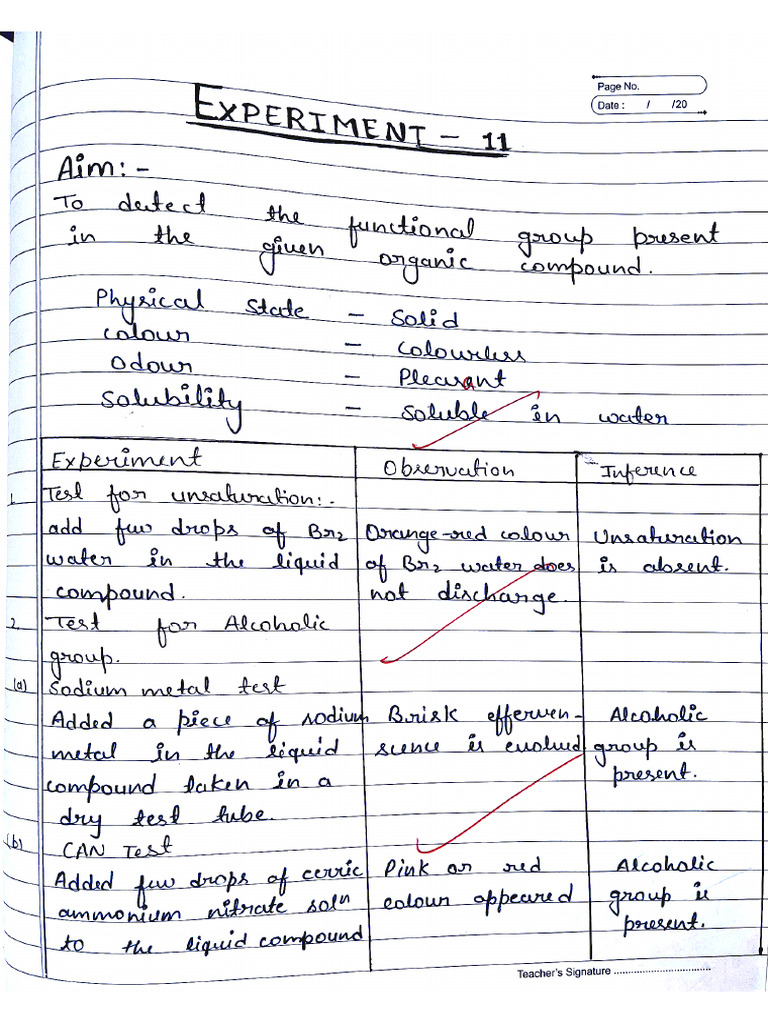 Page No.
Date : / /20
EXPERIMENT - 11
Aim:-
To detect the functional group present
in the given organic compound.
Physical State - Solid
Colour - Colourless
Odour - Pleasant
Solubility - Soluble in water
Experiment Observation Inference
1. Test for unsaturation:-
add few drops of Br2 Orange-red colour Unsaturation
water in the liquid of Br2 water does is absent.
compound. not discharge.
2. Test for Alcoholic
group.
(a) Sodium metal test
Added a piece of sodium Brisk efferven- Alcoholic
metal in the liquid scence is evolved group is
compound taken in a present.
dry test tube.
(b) CAN Test
Added few drops of cerric Pink or red Alcoholic
ammonium nitrate solⁿ colour appeared group is
to the liquid compound present.
Teacher's Signature ..................................